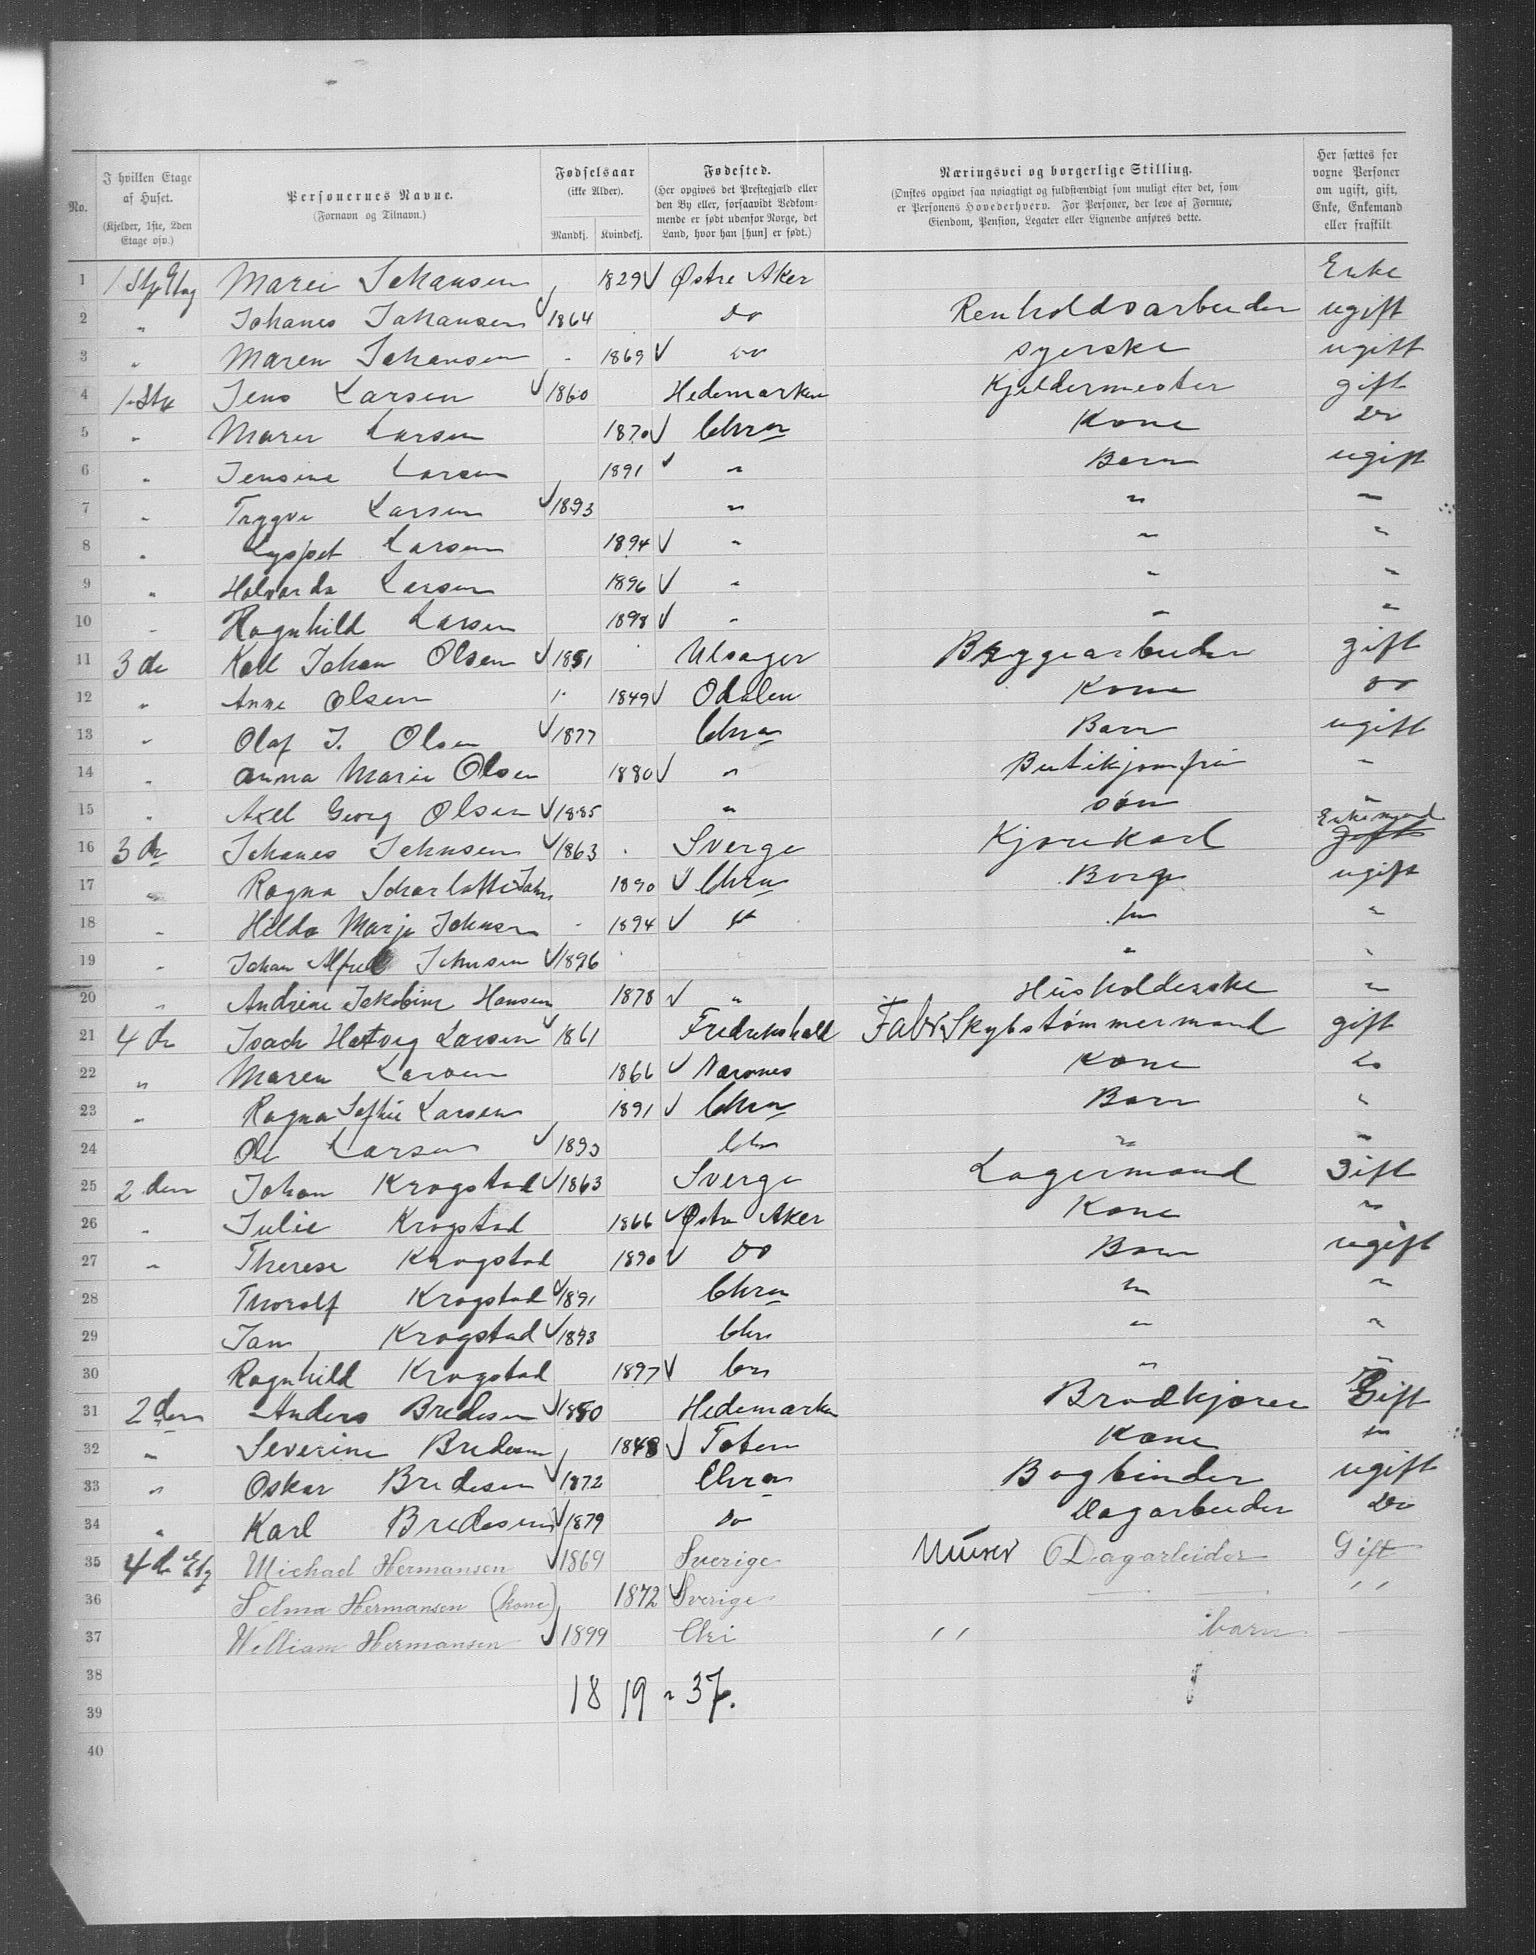 No. | I hvilken Etage af Huset. (Kjelder, 1ste, 2den Etage osv.) | Personernes Navne. (Fornavn og Tilnavn.) | Fødselsaar (ikke Alder). Mandkj. | Kvindekj. | Fødested. (Her opgives det Prestegjæld eller den By eller, forsaavidt Vedkommende er født udenfor Norge, det Land, hvor han [hun] er født.) | Næringsvei og borgerlige Stilling. (Ønskes opgivet saa nøiagtigt og fuldstændigt som muligt efter det, som er Personens Hovederhverv. For Personer, der leve af Formue, Eiendom, Pension, Legater eller Lignende anføres dette.) | Her sættes for voxne Personer om ugift, gift, Enke, Enkemand eller fraskilt
1 Marei Johansen 1829 √ Østre Aker Enke
2 " Johanes Johansen √ 1864 Do Renholdsarbeider ugift
3 " Maren Johansen 1869 √ Do syerske ugift
4 1 Ste Jens Larsen √ 1860 Hedemarken Kjeldermester gift
5 " Marie Larsen 1870 √ Chra Kone Do
6 " Jensine Larsen 1891 √ " Barn ugift
7 " Trygve Larsen √ 1893 " " "
8 " Larsen 1894 √ " " "
9 " Halvarda Larsen 1896 √ " " "
10 " Ragnhild Larsen 1898 √ " " "
11 3 de Karl Johan Olsen √ 1851 Ulsager Bryggearbeider gift
12 " Anne Olsen 1849 √ Odalen Kone Do
13 " Olaf J. Olsen √ 1877 Chra Barn ugift
14 " Anna Marie Olsen 1880 √ " Butikjomfru "
15 " Axel Georg Olsen √ 1885 " søn "
16 3 de Johanes Johnsen √ 1863 Sverge Kjørekarl Enkemand Gift
17 " Ragna Scharlotte Johns 1890 √ Chra Barn ugift
18 " Hilda Marja Johnsen 1894 √ " " "
19 " Johan Alfred Johnsen √ 1896 " "
20 " Andrine Jakobine Hansen 1878 √ " Husholderske "
21 4 de Isach Hartvig Larsen √ 1861 Fredrikshald Fabr. Skybstømmermand gift
22 " Maren Larsen 1866 √ Næsnes Kone Do
23 " Ragna Sofhie Larsen 1891 √ Chra Barn "
24 Ole Larsen √ 1893 Chra " "
25 2 den Johan Krogstad √ 1863 Sverge Lagermand Gift
26 " Julie Krogstad 1866 √ Østre Aker Kone "
27 " Therese Krogstad 1890 √ Do Barn ugift
28 Thoralf Krogstad √ 1891 Chra " "
29 Jan Krogstad √ 1893 Chra " "
30 Ragnhild Krogstad 1897 √ Chra " "
31 2 den Anders Bredesen √ 1850 Hedemarken Brødkjører Gift
32 " Severine Bredesen 1848 √ Toten Kone "
33 " Oskar Bredesen √ 1872 Chra Bogbinder ugift
34 " Karl Bredesen √ 1879 Do Dagarbeider Do
35 4 de Etg Michael Hermansen √ 1869 Sverige Murer Dagarbeider Gift
36 Selma Hermansen (kone) 1872 √ Sverige "
37 William Hermansen √ 1899 Chri " barn
38 18 19 = 37.
39
40